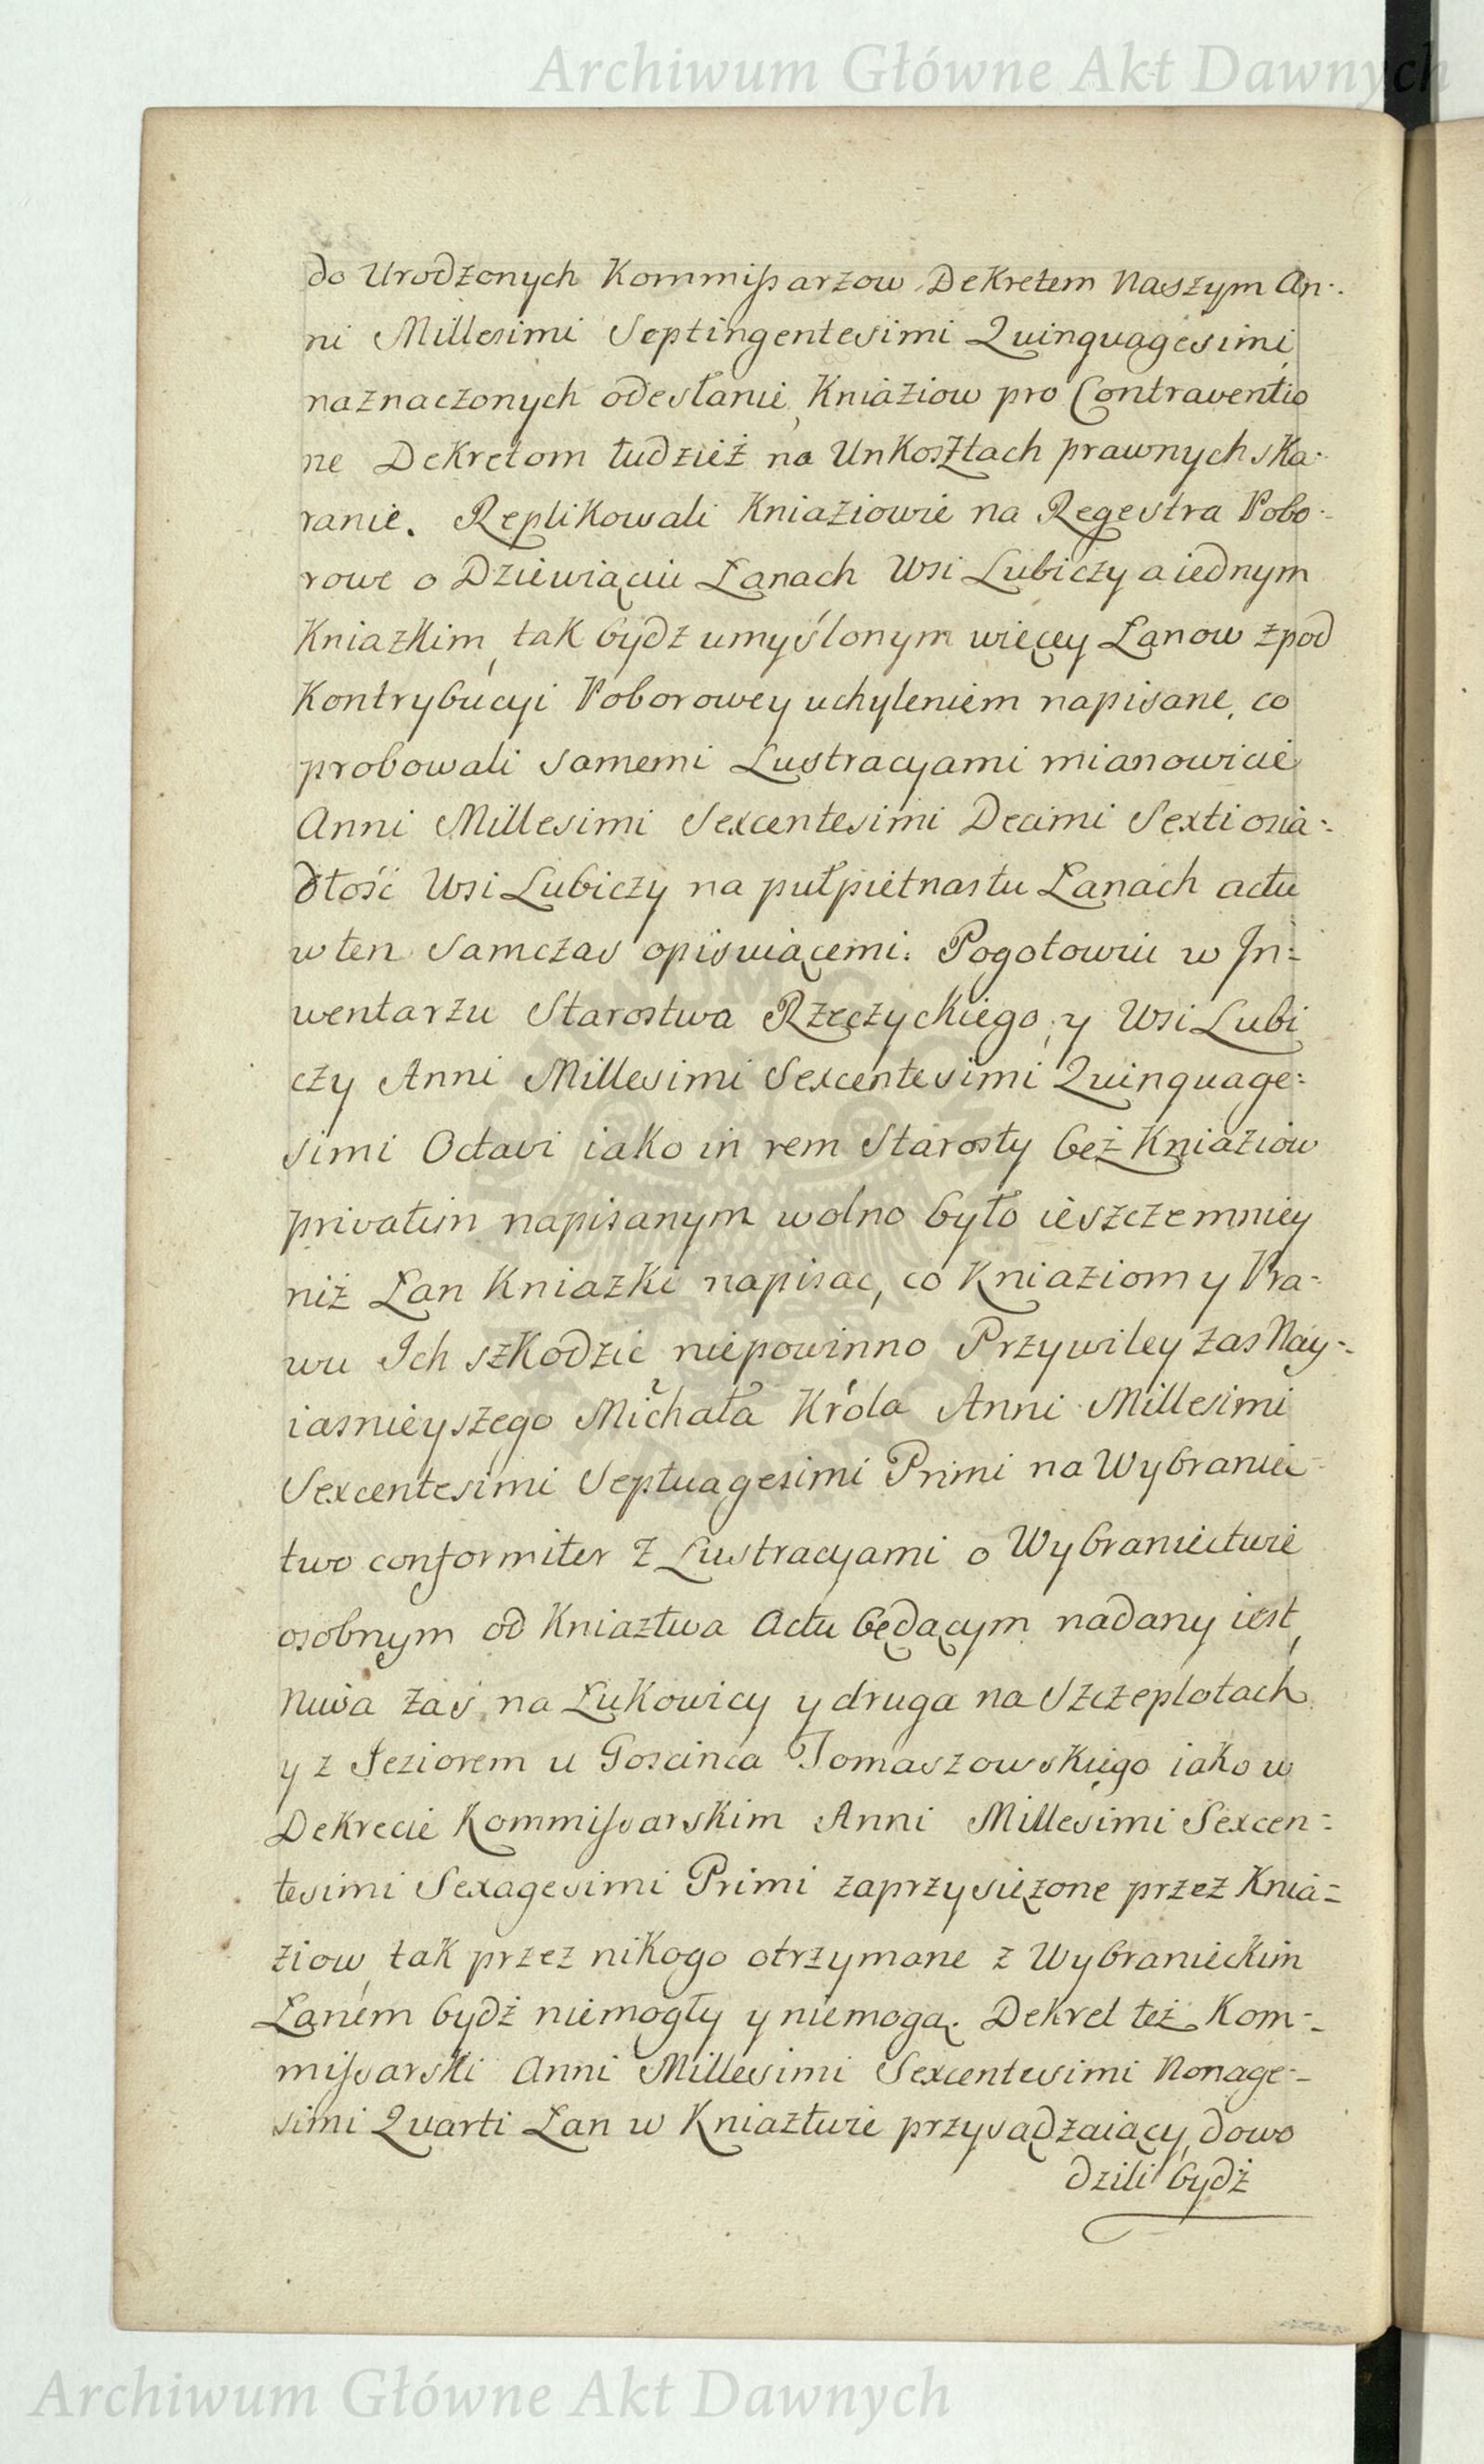 Archiwum Główne Akt Dawnych
do Urodzonych Kommissarzow Dekretem Naszym An-
ni Millesimi Septingentesimi Quinquagesimi
naznaczonych odesłanie, Kniaziow pro Contraventio
ne Dekretom tudzież na Unkosztach prawnych ska-
ranie. Replikowali Kniaziowie na Regestra Pobo-
rowe o Dziewiąciu Łanach Wsi Lubiczy a iednym
Kniazkim, tak bydz umyślonym więcey Łanow zpod
Kontrybucyi Poborowey uchyleniem napisane, co
probowali samemi Lustracyami mianowicie
Anni Millesimi Sexcentesimi Decimi Sexti osia-
dłość Wsi Lubiczy na pułpietnastu Łanach actu
w ten samczas opisuiącemi: Pogotowiu w In-
wentarzu Starostwa Rzeczyckiego, y Wsi Lubi
czy Anni Millesimi Sexcentesimi Quinquage-
simi Octavi iako in rem Starosty bez Kniaziow
privatim napisanym wolno było ieszcze mniey
niż Łan Kniazki napisac, co Kniaziom y Pra-
wu Ich szkodzić niepowinno Przywiley zas Nay-
iasnieyszego Michała Króla Anni Millesimi
Sexcentesimi Septuagesimi Primi na Wybraniec-
two conformiter z Lustracyami o Wybraniectwie
osobnym od Kniaztwa actu będącym nadany iest,
Niwa zaś na Łukowicy y druga na Szczeplotach
y z Jeziorem u Goscinca Tomaszowskiego iako w
Dekrecie Kommissarskim Anni Millesimi Sexcen-
tesimi Sexagesimi Primi zaprzysiężone przez Knia-
ziow, tak przez nikogo otrzymane z Wybranieckim
Łanem bydź niemogły y niemogą. Dekret też Kom-
missarski Anni Millesimi Sexcentesimi Nonage-
simi Quarti Łan w Kniaztwie przysądzaiący, dowo
dzili bydż
Archiwum Główne Akt Dawnych